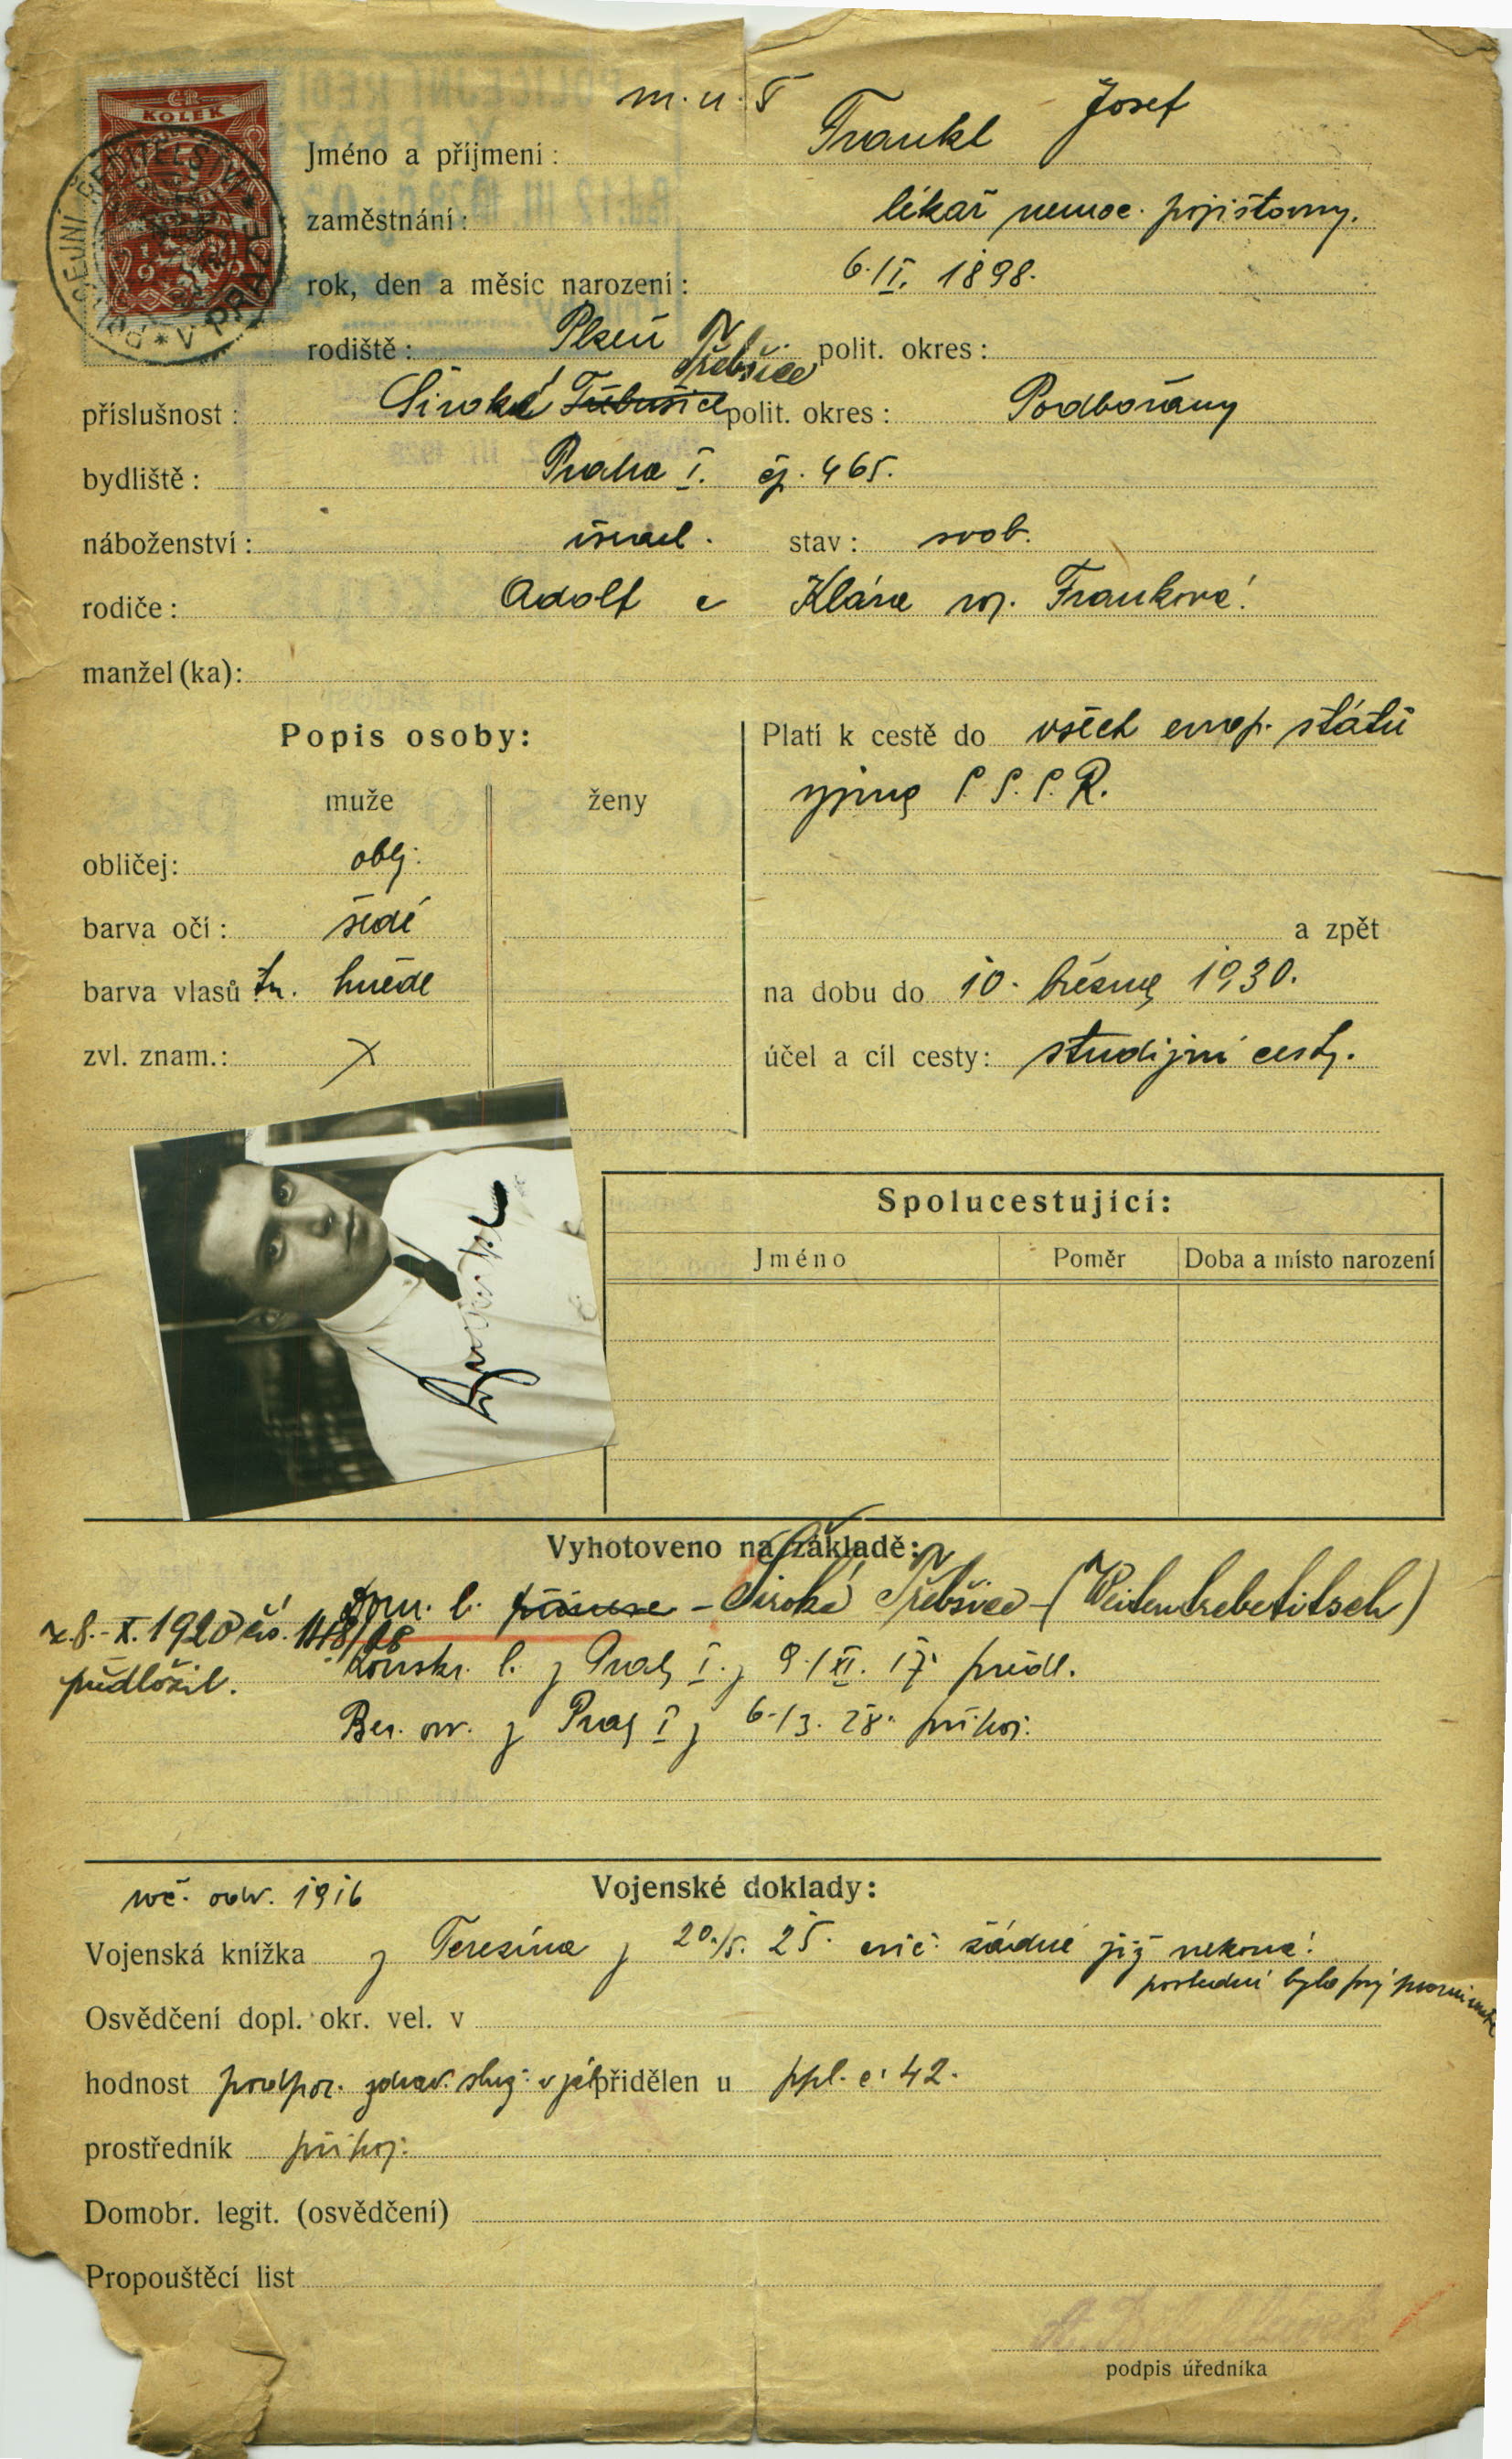 ČR
KOLEK
m. u. Š
Jméno a příjmení: Frankl Josef
zaměstnání: lékař nemoc. pojišťovny.
rok, den a měsíc narození: 6./I. 1898.
rodiště: Plzeň polit. okres:
Třebšice
příslušnost: Široké polit. okres: Podbořany
bydliště: Praha I. čp. 465.
náboženství: israel. stav: svob.
rodiče: Adolf a Klára roz. Franková.
manžel (ka):
Popis osoby:
muže ženy
obličej: oblý.
barva očí: šedé
barva vlasů tm. hnědé
zvl. znam.: X
Platí k cestě do všech evrop. států
vyjma S.S.S.R.
a zpět
na dobu do 10. března 1930.
účel a cíl cesty: studijní cesty.
Spolucestující:
Jméno Poměr Doba a místo narození
Vyhotoveno na základě:
Dom. l. Široké Třebšice - (Weitentrebetitsch)
z 8.-X. 1928 čís. 1118/28
předložil.
Konskr. l. z Prahy I. z 9./XI. 17. předl.
Ber. ov. z Prahy I z 6./3. 28. připoj.
Vojenské doklady:
roč. odv. 1916
Vojenská knížka z Terezína z 20./5. 25. cvič. žádné již nekoná.
poslední bylo prý
Osvědčení dopl. okr. vel. v
hodnost podpor. zdrav. sluz. v přidělen u ppl. č. 42.
prostředník připoj.
Domobr. legit. (osvědčení)
Propouštěcí list
podpis úředníka